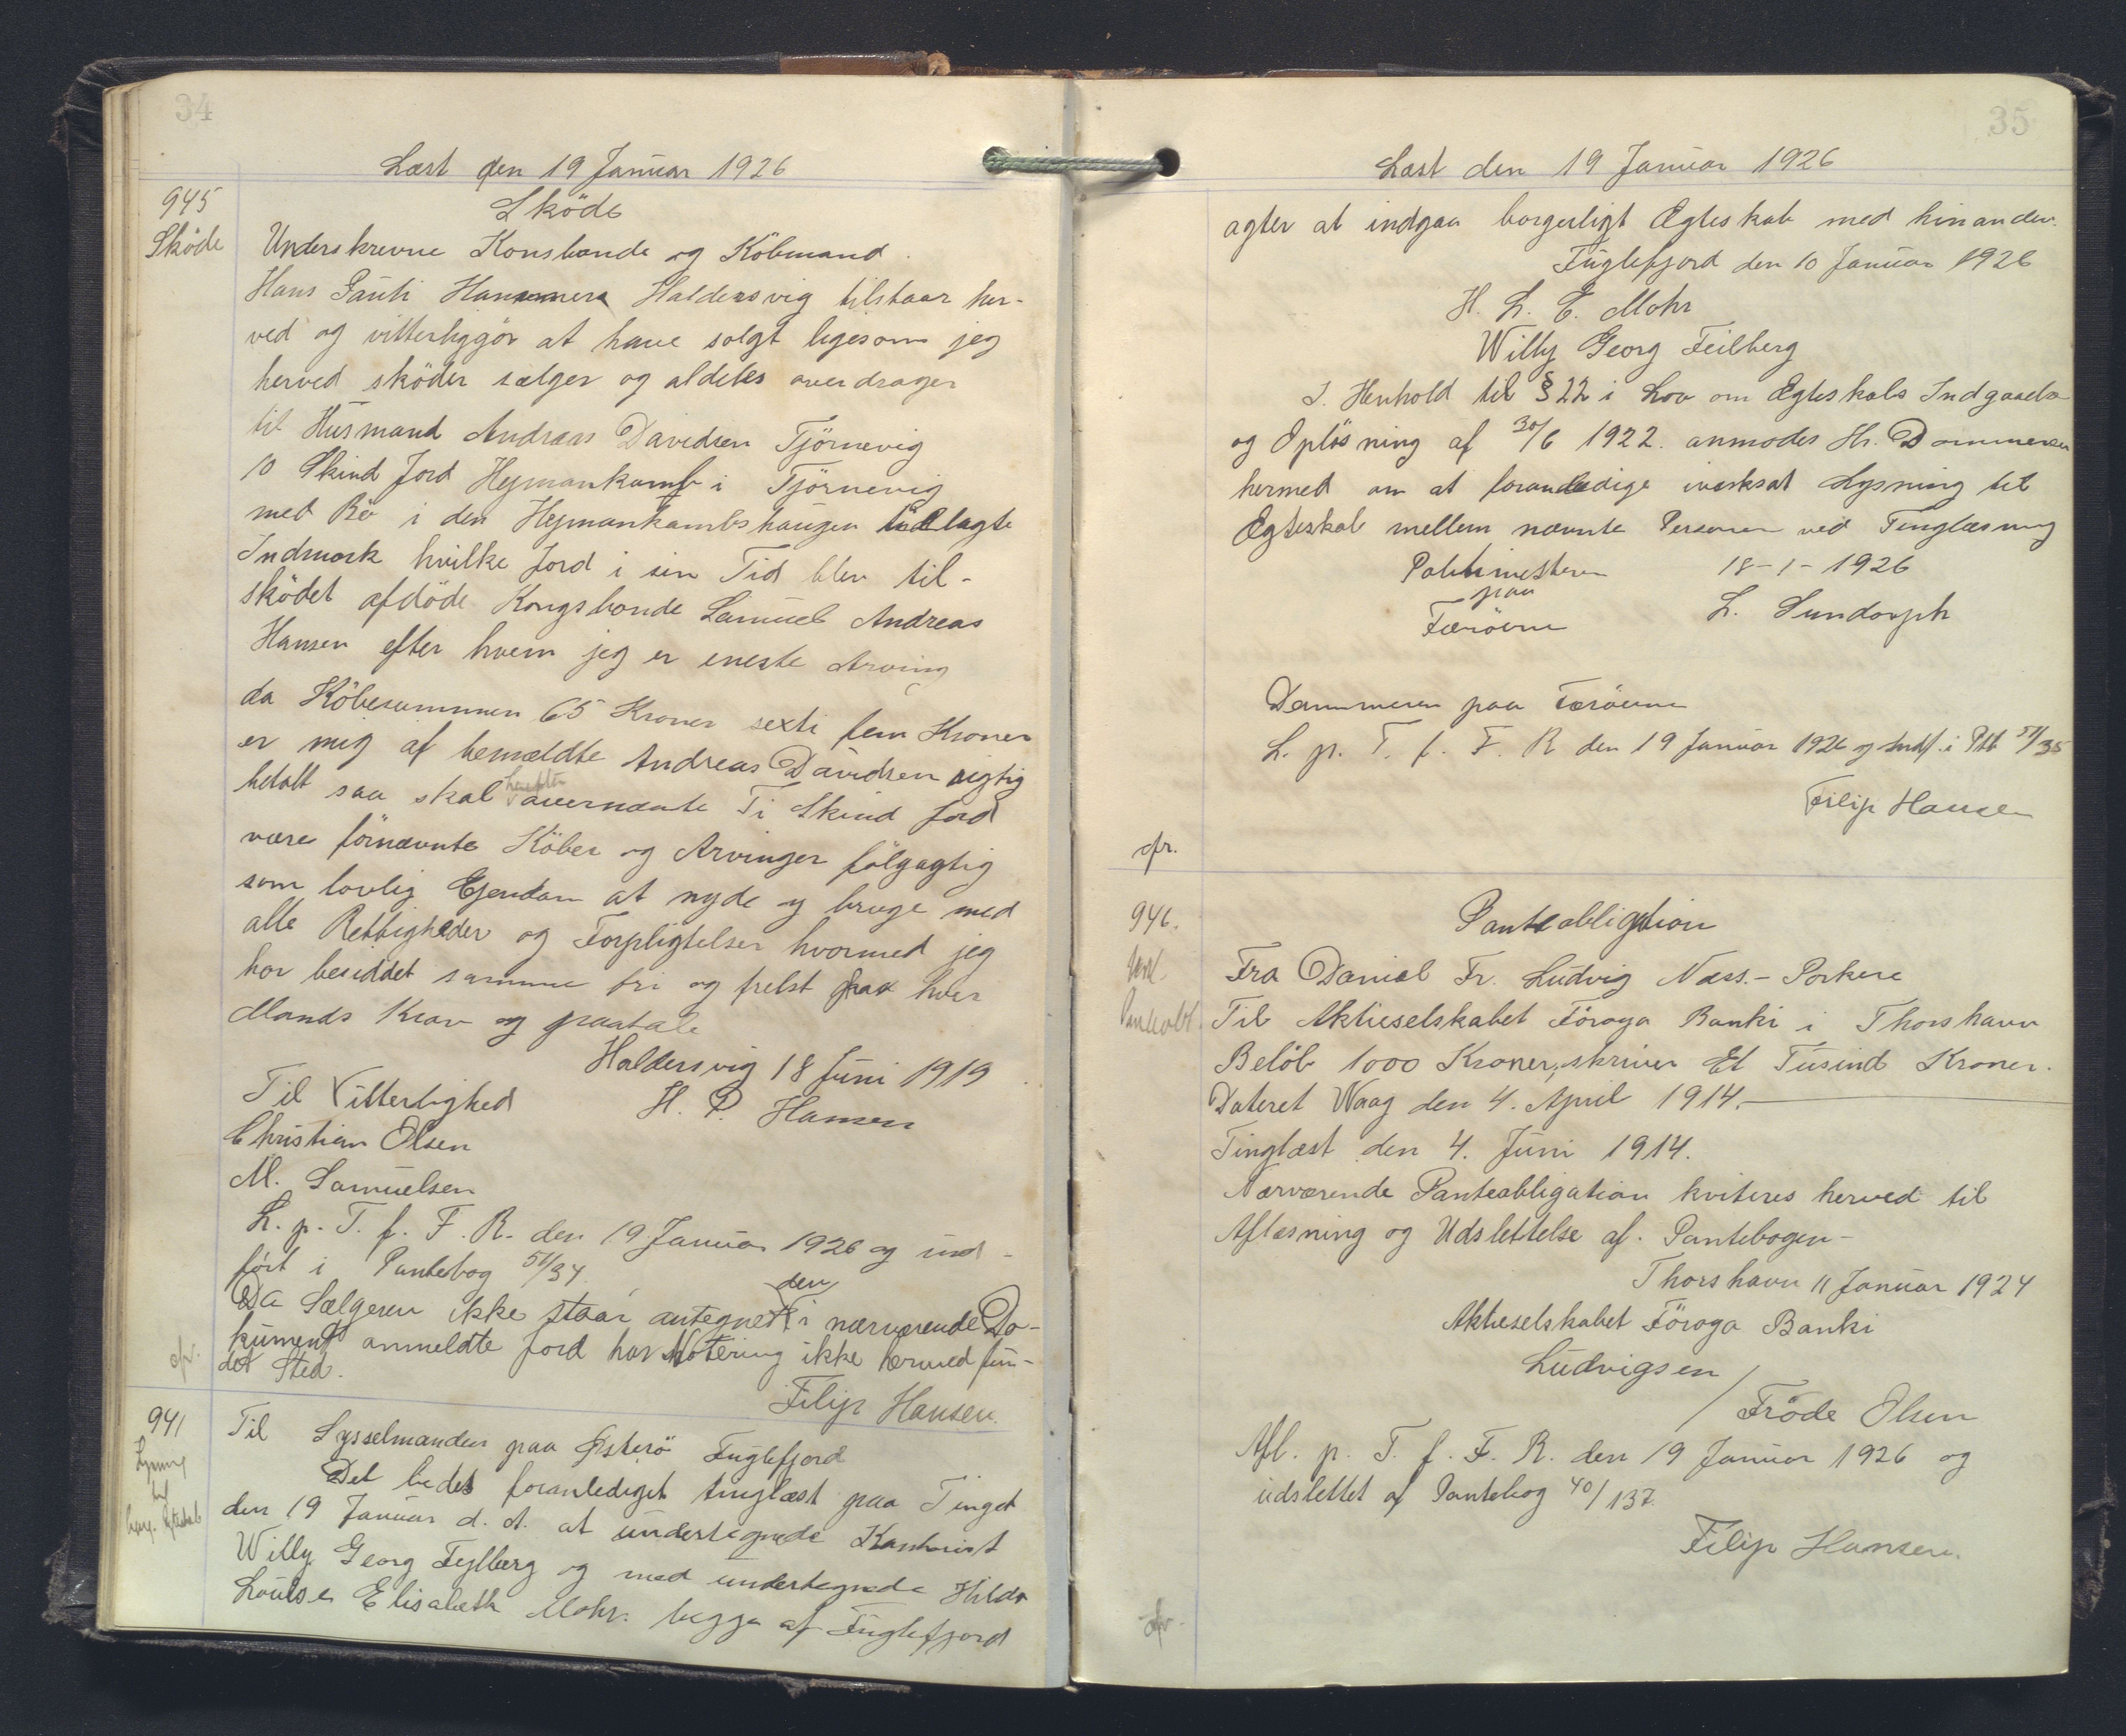 34
Læst den 19 Januar 1926
945
Sköde
Sköde
Underskrevne Konsbonde og Köbmand
Hans Pauli Hansen Haldersvig tilstaar her-
ved og vitterliggör at have solgt ligesom jeg
herved sköder sælger og aldeles overdrager
til Husmand Andreas Davidsen Tjörnevig
10 Skind Jord Hejmankamb i Tjörnevig
med Bö i den Hejmankambshaugen udlagte
Indmark hvilke Jord i sin Tid blev til-
sködet afdöde Kongsbonde Samuel Andreas
Hansen efter hvem jeg er eneste Arving
da Köbesummen 65 Kroner sexti fem Kroner
er mig af bemældte Andreas Davidsen rigtig
betalt saa skal herefter ovennævnte Ti Skind Jord
være förnævnte Köber og Arvinger fölgagtig
som lovlig Ejendom at nyde og bruge med
alle Rettigheder og Forpligtelser hvormed jeg
har besiddet samme fri og frelst fra hver
Mands Krav og paatale
Haldersvig 18 Juni 1919
Til Vitterlighed H. P. Hansen
Christian Olsen
M. Samuelsen
L. p. T. f. F. R. den 19 Januar 1926 og ind-
fört i Pantebog 51/34
Da Sælgeren ikke staar antegnet i den nærværende Do-
kument anmeldte Jord har Notering ikke hermed fun-
det Sted.
cfr.
Filip Hansen.
941
Lysning
til
borg. Ægteskab
Til Sysselmanden paa Østerö Fuglefjord
Det bedes foranlediget tinglæst paa Tinget
den 19 Januar d. A. at undertegnede Kontorist
Willy Georg Fejlberg og med undertegnede Hilda
Louise Elisabeth Mohr begge af Fuglefjord
35
Læst den 19 Januar 1926
agter at indgaa borgerligt Ægteskab med hinanden.
Fuglefjord den 10 Januar 1926
H. L. E. Mohr
Willy Georg Feilberg
I Henhold til § 22 i Lov om Ægteskabs Indgaaelse
og Oplösning af 30/6 1922 anmodes Hr. Dommeren
hermed om at foranledige iværksat Lysning til
Ægteskab mellem nævnte Personer ved Tinglæsning
Politimesteren 18-1-1926
paa
Færöerne L. Sundorph
Dommeren paa Færöerne
L. p. T. f. F. R den 19 Januar 1926 og Indf. i Ptb 51/35
Filip Hansen
cfr.
946.
Pantobligation
Fra Daniel Fr. Ludvig Næss.- Porkere
Til Aktieselskabet Föroya Banki i Thorshavn
Belöb 1000 Kroner, skriver Et Tusind Kroner.
Dateret Waag den 4. April 1914.
Tinglæst den 4. Juni 1914.
Nærværende Panteobligation kviteres herved til
Aflæsning og Udslettelse af. Pantebogen-
Thorshavn 11 Januar 1924
Aktieselskabet Föroya Banki
Ludvigsen
/ Fröde Olsen
Afl. p. T. f. F. R. den 19 Januar 1926 og
udslettet af Pantebog 40/137.
Filip Hansen.
cfr.